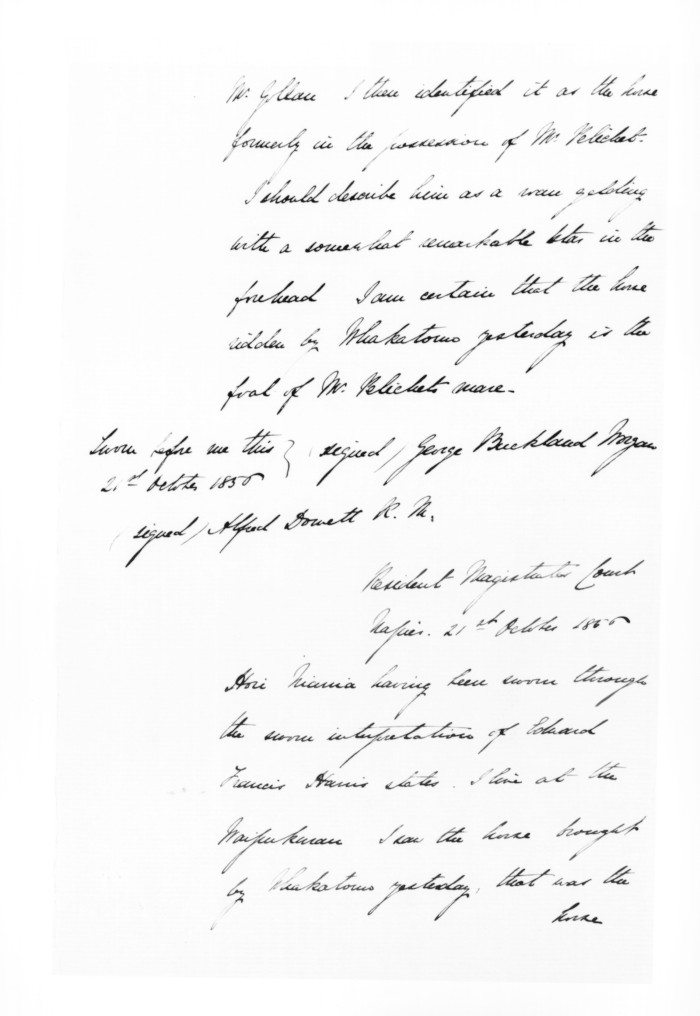 Mr. Gollan I then identified it as the horse
formerly in the possession of Mr. Pelichet.
I should describe him as a roan gelding
with a somewhat remarkable star in the
forehead I am certain that the horse
ridden by Whakatomo yesterday is the
foal of Mr. Pelichets mare -
Sworn before me this } (signed) George Buckland Worgan
21st October 1856
(signed) Alfred Domett R. M.
Resident Magistrates Court
Napier. 21st October 1856
Hori Niania having been sworn through
the sworn interpretation of Edward
Francis Harris states. I live at the
Waipukurau I saw the horse brought
by Whakatomo yesterday, that was the
horse